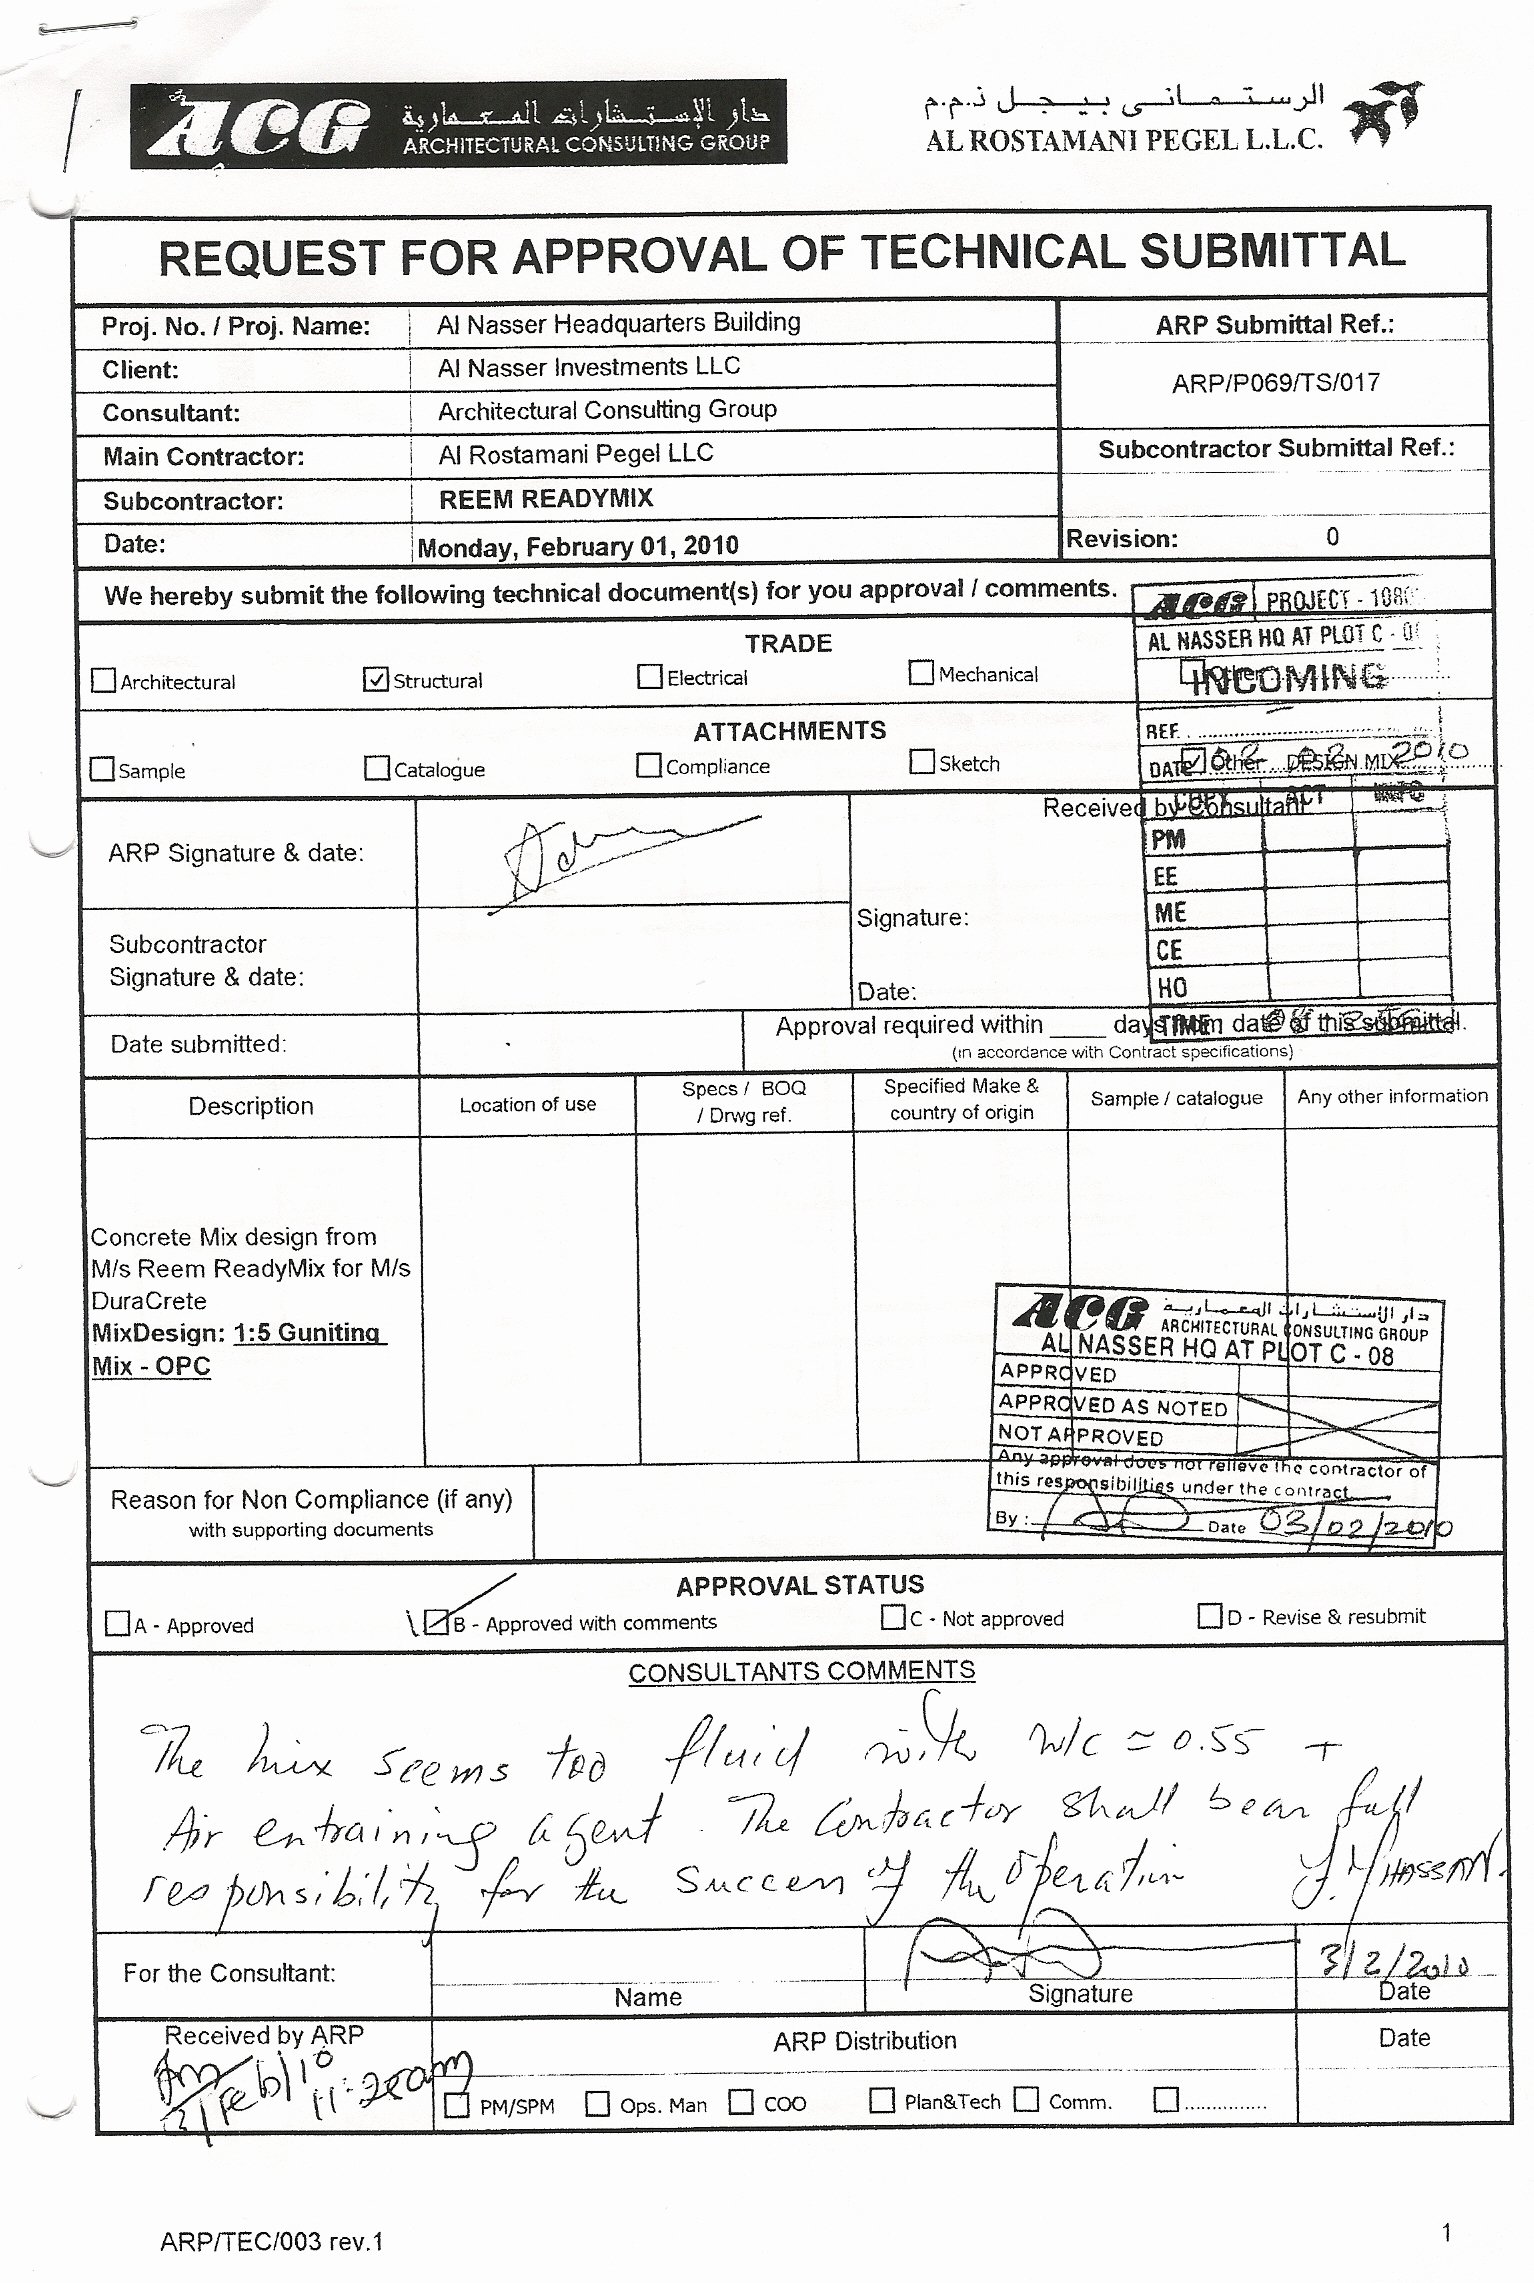 ACG دار الإستشارات المعمارية
ARCHITECTURAL CONSULTING GROUP
الرستماني بيجل ذ.م.م
AL ROSTAMANI PEGEL L.L.C.
REQUEST FOR APPROVAL OF TECHNICAL SUBMITTAL
Proj. No. / Proj. Name: Al Nasser Headquarters Building
ARP Submittal Ref.:
Client: Al Nasser Investments LLC
ARP/P069/TS/017
Consultant: Architectural Consulting Group
Main Contractor: Al Rostamani Pegel LLC
Subcontractor Submittal Ref.:
Subcontractor: REEM READYMIX
Date: Monday, February 01, 2010
Revision: 0
We hereby submit the following technical document(s) for you approval / comments.
ACG PROJECT - 1080
AL NASSER HQ AT PLOT C - 0
INCOMING
REF.
DATE 02 02 2010
COPY ACT INFO
PM
EE
ME
CE
HO
TIME
TRADE
Architectural Structural Electrical Mechanical Other
ATTACHMENTS
Sample Catalogue Compliance Sketch Other DESIGN MIX
ARP Signature & date:
Received by Consultant
Signature:
Subcontractor
Signature & date:
Date:
Date submitted:
Approval required within ____ days from date of this submittal.
(in accordance with Contract specifications)
Description Location of use Specs / BOQ / Drwg ref. Specified Make & country of origin Sample / catalogue Any other information
Concrete Mix design from
M/s Reem ReadyMix for M/s
DuraCrete
MixDesign: 1:5 Guniting
Mix - OPC
ACG دار الإستشارات المعمارية
ARCHITECTURAL CONSULTING GROUP
AL NASSER HQ AT PLOT C - 08
APPROVED
APPROVED AS NOTED
NOT APPROVED
Any approval does not relieve the contractor of
this responsibilities under the contract
By : Date 03/02/2010
Reason for Non Compliance (if any)
with supporting documents
APPROVAL STATUS
A - Approved B - Approved with comments C - Not approved D - Revise & resubmit
CONSULTANTS COMMENTS
The mix seems too fluid with w/c ≃ 0.55 +
Air entraining agent. The Contractor shall bear full
responsibility for the success of the operation Y.Y HASSAN.
For the Consultant:
3/2/2010
Name Signature Date
Received by ARP ARP Distribution Date
3/Feb/10
11:20am
PM/SPM Ops. Man COO Plan&Tech Comm. ...............
ARP/TEC/003 rev.1
1